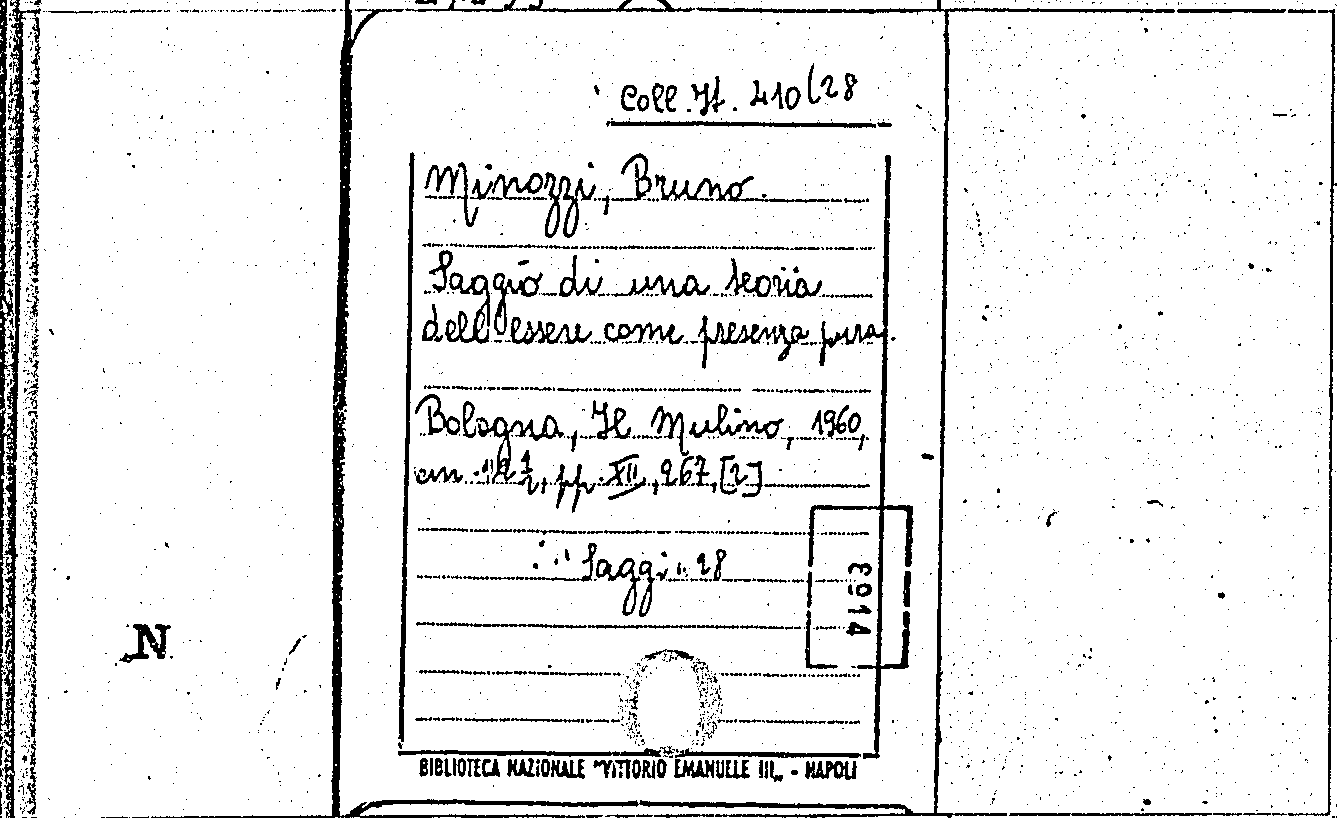 Coll. It. 410(28
Minozzi, Bruno.
Saggio di una teoria
dell'essere come presenza pura.
Bologna, Il Mulino, 1960,
cm. 21 1/2, pp. XII, 267, [2]
"Saggi" 28
8014
N
BIBLIOTECA NAZIONALE "VITTORIO EMANUELE III„ - NAPOLI